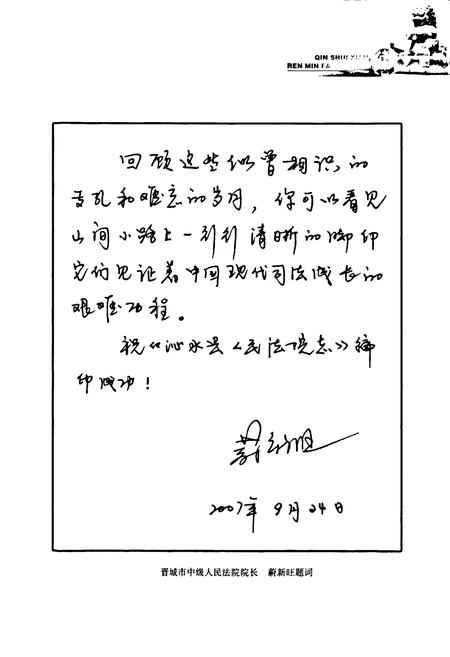 QIN SHUI XIAN
REN MIN FA
回顾这些似曾相识的
音乱和难忘的岁月，你可以看见
山间小路上一行行清晰的脚印
它们见证着中国现代司法成长的
艰难历程。
祝《沁水县人民法院志》编
印成功！
蔚新旺
2007年9月24日
晋城市中级人民法院院长 蔚新旺题词